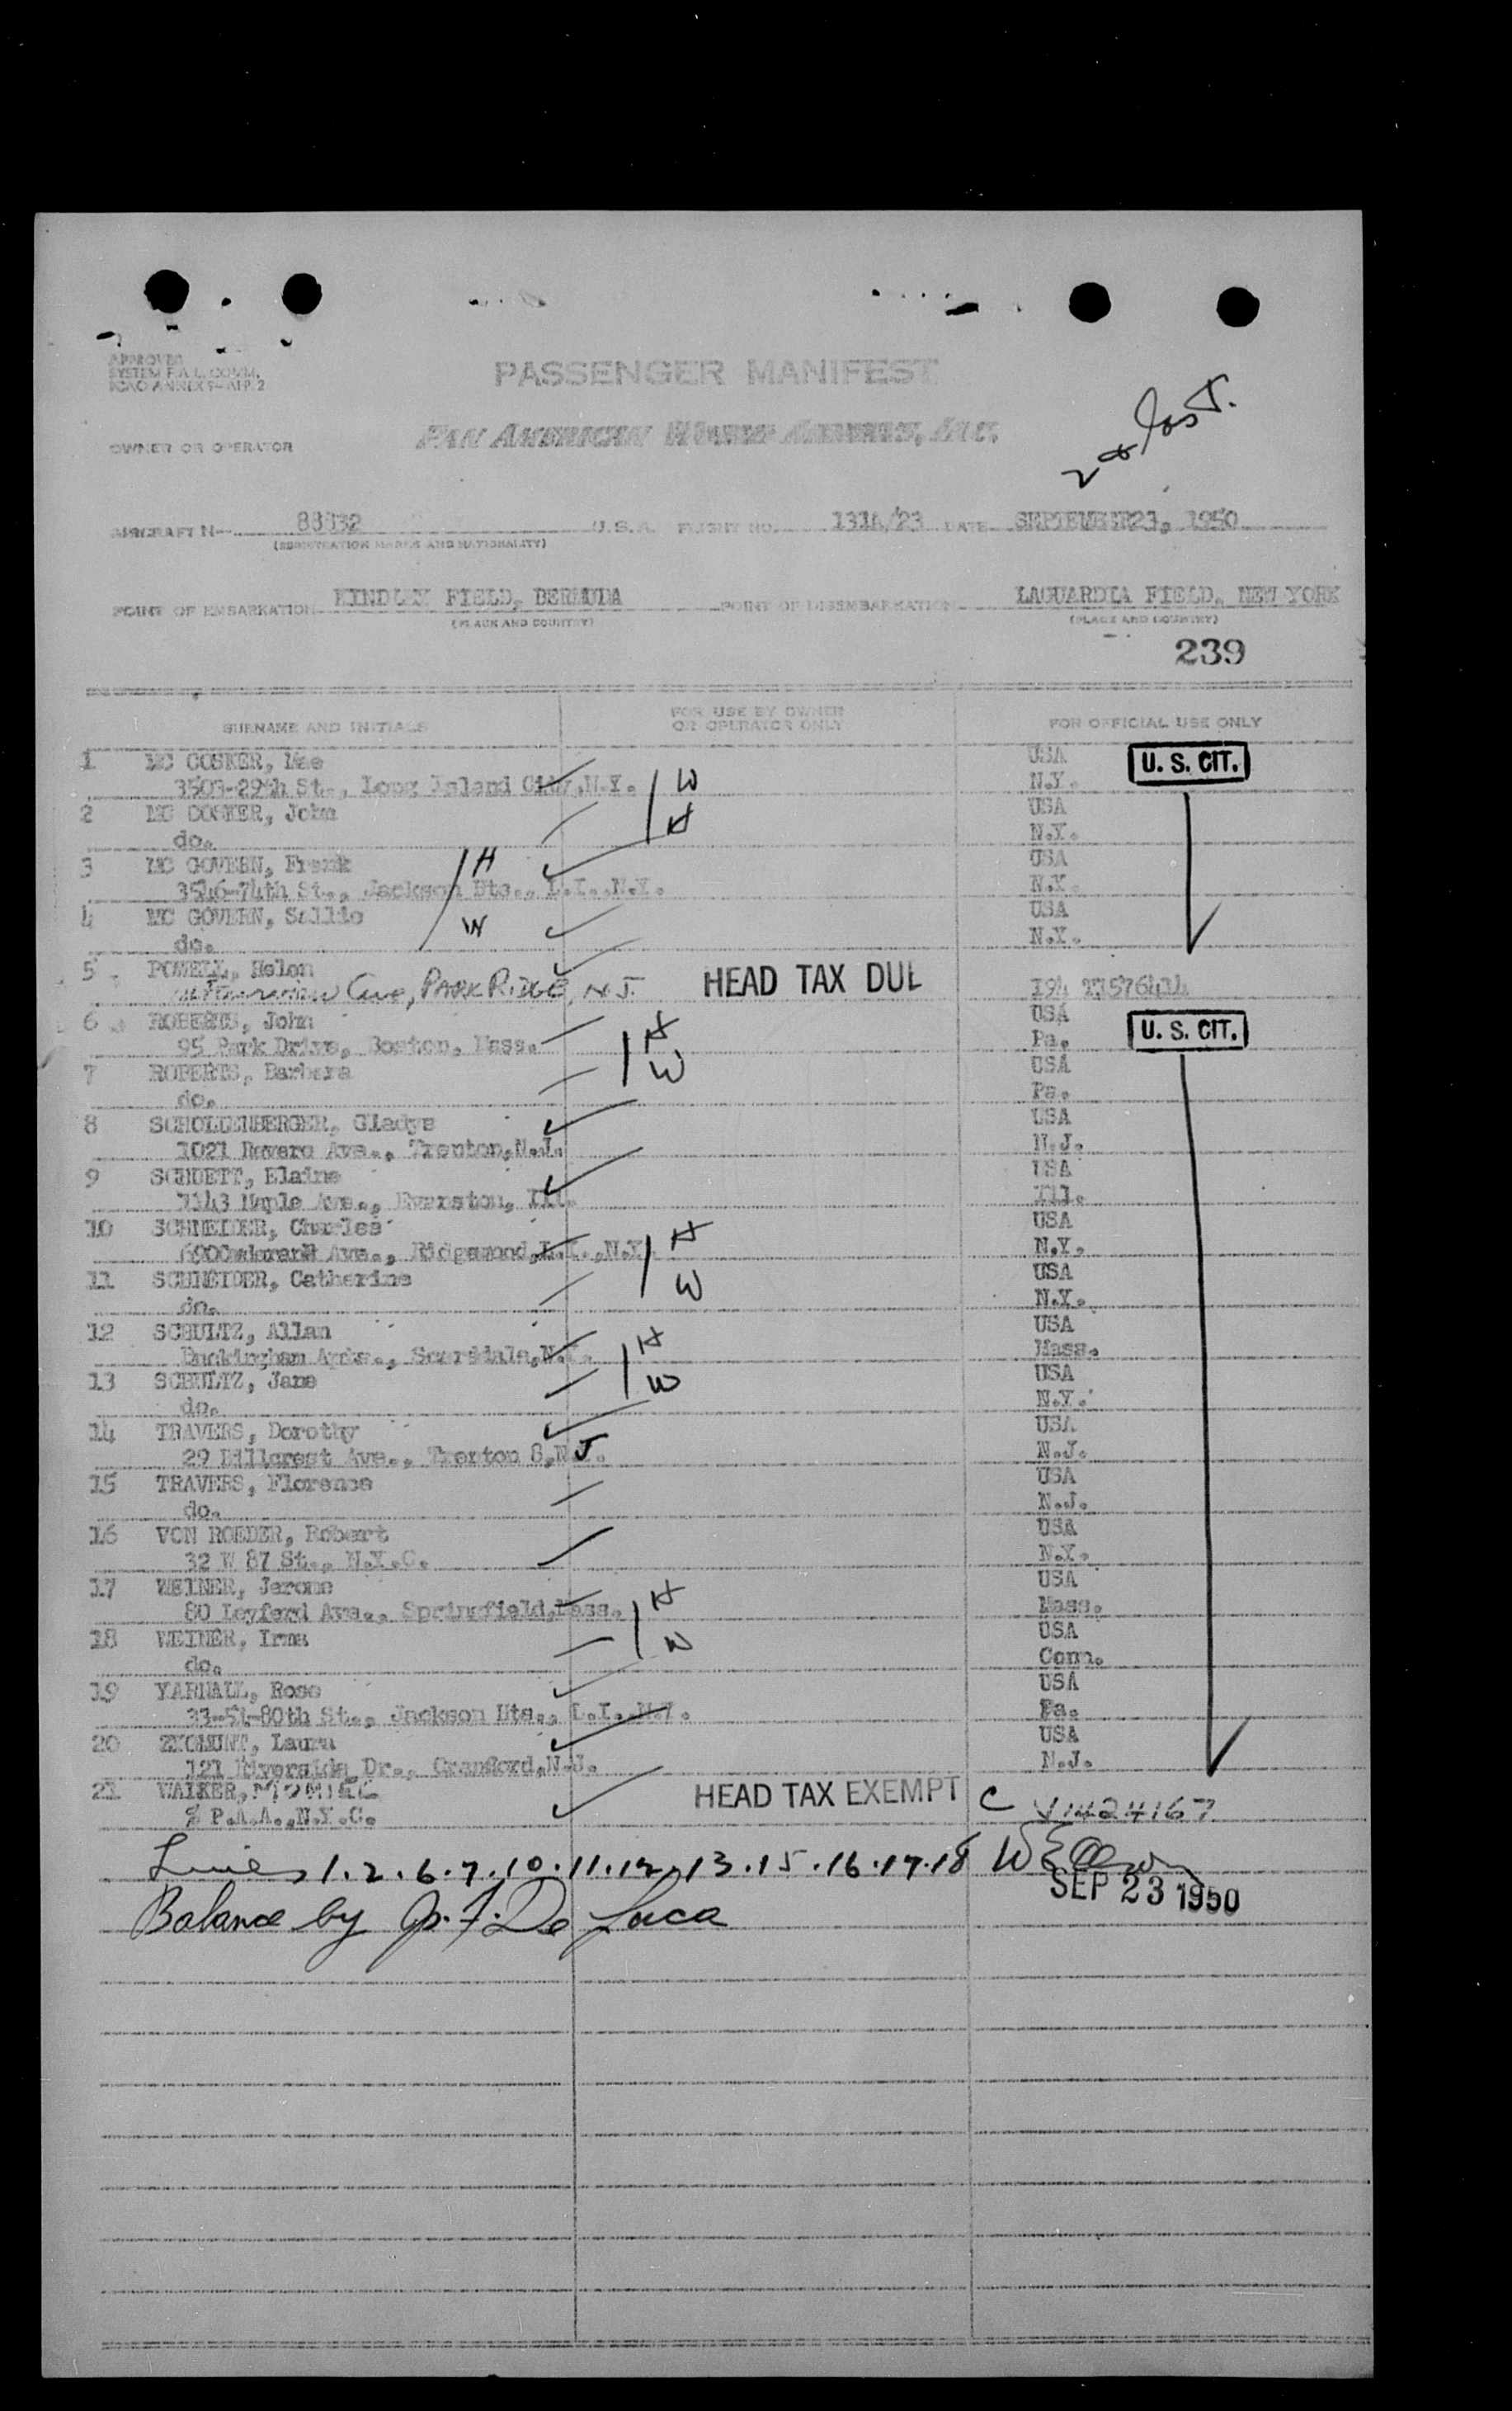 APPROVED
SYSTEM F.A.L. COMM.
ICAO ANNEX 9-APP. 2
PASSENGER MANIFEST
OWNER OR OPERATOR PAN AMERICAN WORLD AIRWAYS, INC.
2nd last.
AIRCRAFT N- U.S.A. FLIGHT NO. 131A/23 DATE SEPTEMBER23, 1950
(REGISTRATION MARKS AND NATIONALITY)
POINT OF EMBARKATION KINDLEY FIELD, BERMUDA POINT OF DISEMBARKATION LAGUARDIA FIELD, NEW YORK
(PLACE AND COUNTRY) (PLACE AND COUNTRY)
239
SURNAME AND INITIALS FOR USE BY OWNER OR OPERATOR ONLY FOR OFFICIAL USE ONLY
1 MC COSKER, Mae USA U. S. CIT.
3503-29th St., Long Island City,N.Y. W N.Y.
2 MC COSKER, John USA
do. H N.Y.
3 MC GOVERN, Frank H USA
3546-74th St., Jackson Hts., L.I.,N.Y. N.Y.
4 MC GOVERN, Sallie W USA
do. N.Y.
5 POWELL, Helen HEAD TAX DUE
Ave, PARK RIDGE, N J. I94
6 ROBERTS, John H USA U. S. CIT.
95 Park Drive, Boston, Mass. Pa.
7 ROBERTS, Barbara W USA
do. Pa.
8 SCHOLLENBERGER, Gladys USA
1021 Revere Ave., Trenton,N.J. N.J.
9 SCHUETT, Elaine USA
1143 Maple Ave., Evanston, Ill. Ill.
10 SCHNEIDER, Charles H USA
Ave., Ridgewood,L.I.,N.Y. N.Y.
11 SCHNEIDER, Catherine W USA
do. N.Y.
12 SCHULTZ, Allan H USA
Buckingham Apts., Scarsdale,N.Y. Mass.
13 SCHULTZ, Jane W USA
do. N.Y.
14 TRAVERS, Dorothy USA
29 Hillcrest Ave., Trenton 8,N.J. N.J.
15 TRAVERS, Florence USA
do. N.J.
16 VON ROEDER, Robert USA
32 W 87 St., N.Y.C. N.Y.
17 WEINER, Jerome H USA
80 Leyford Ave., Springfield,Mass. Mass.
18 WEINER, Irma W USA
do. Conn.
19 YARNALL, Rose USA
33-51-80th St., Jackson Hts., L.I.,N.Y. Pa.
20 ZYGMUNT, Laura USA
121 Riverside Dr., Cranford,N.J. N.J.
21 WALKER, HEAD TAX EXEMPT C V1424167
% P.A.A.,N.Y.C.
Lines 1.2.6.7.10.11.12.13.15.16.17.18
SEP 23 1950
Balance by